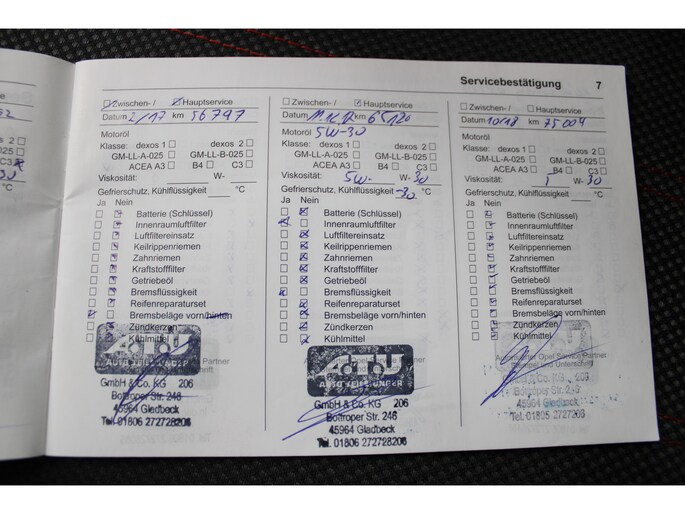 Servicebestätigung 7
Zwischen- / Hauptservice
Datum 2/17 km 56797
Motoröl
Klasse: dexos 1 dexos 2
GM-LL-A-025 GM-LL-B-025
ACEA A3 B4 C3
Viskosität: W- 
Gefrierschutz, Kühlflüssigkeit °C
Ja Nein
Batterie (Schlüssel)
Innenraumluftfilter
Luftfiltereinsatz
Keilrippenriemen
Zahnriemen
Kraftstofffilter
Getriebeöl
Bremsflüssigkeit
Reifenreparaturset
Bremsbeläge vorn/hinten
Zündkerzen
Kühlmittel
ATU
AUTO TEILE UNGER
GmbH & Co. KG 206
Bottroper Str. 246
45964 Gladbeck
Tel. 01806 272728206
Zwischen- / Hauptservice
Datum km 65120
Motoröl 5W-30
Klasse: dexos 1 dexos 2
GM-LL-A-025 GM-LL-B-025
ACEA A3 B4 C3
Viskosität: 5W- W- 30
Gefrierschutz, Kühlflüssigkeit -30 °C
Ja Nein
Batterie (Schlüssel)
Innenraumluftfilter
Luftfiltereinsatz
Keilrippenriemen
Zahnriemen
Kraftstofffilter
Getriebeöl
Bremsflüssigkeit
Reifenreparaturset
Bremsbeläge vorn/hinten
Zündkerzen
Kühlmittel
ATU
AUTO TEILE UNGER
GmbH & Co. KG 206
Bottroper Str. 246
45964 Gladbeck
Tel. 01806 272728206
Zwischen- / Hauptservice
Datum 10/18 km 75004
Motoröl
Klasse: dexos 1 dexos 2
GM-LL-A-025 GM-LL-B-025
ACEA A3 B4 C3
Viskosität: W- 30
Gefrierschutz, Kühlflüssigkeit °C
Ja Nein
Batterie (Schlüssel)
Innenraumluftfilter
Luftfiltereinsatz
Keilrippenriemen
Zahnriemen
Kraftstofffilter
Getriebeöl
Bremsflüssigkeit
Reifenreparaturset
Bremsbeläge vorn/hinten
Zündkerzen
Kühlmittel
Autorisierter Opel Service Partner
Stempel und Unterschrift
GmbH & Co. KG 206
Bottroper Str.
45964 Gladbeck
Tel. 01806 272728206